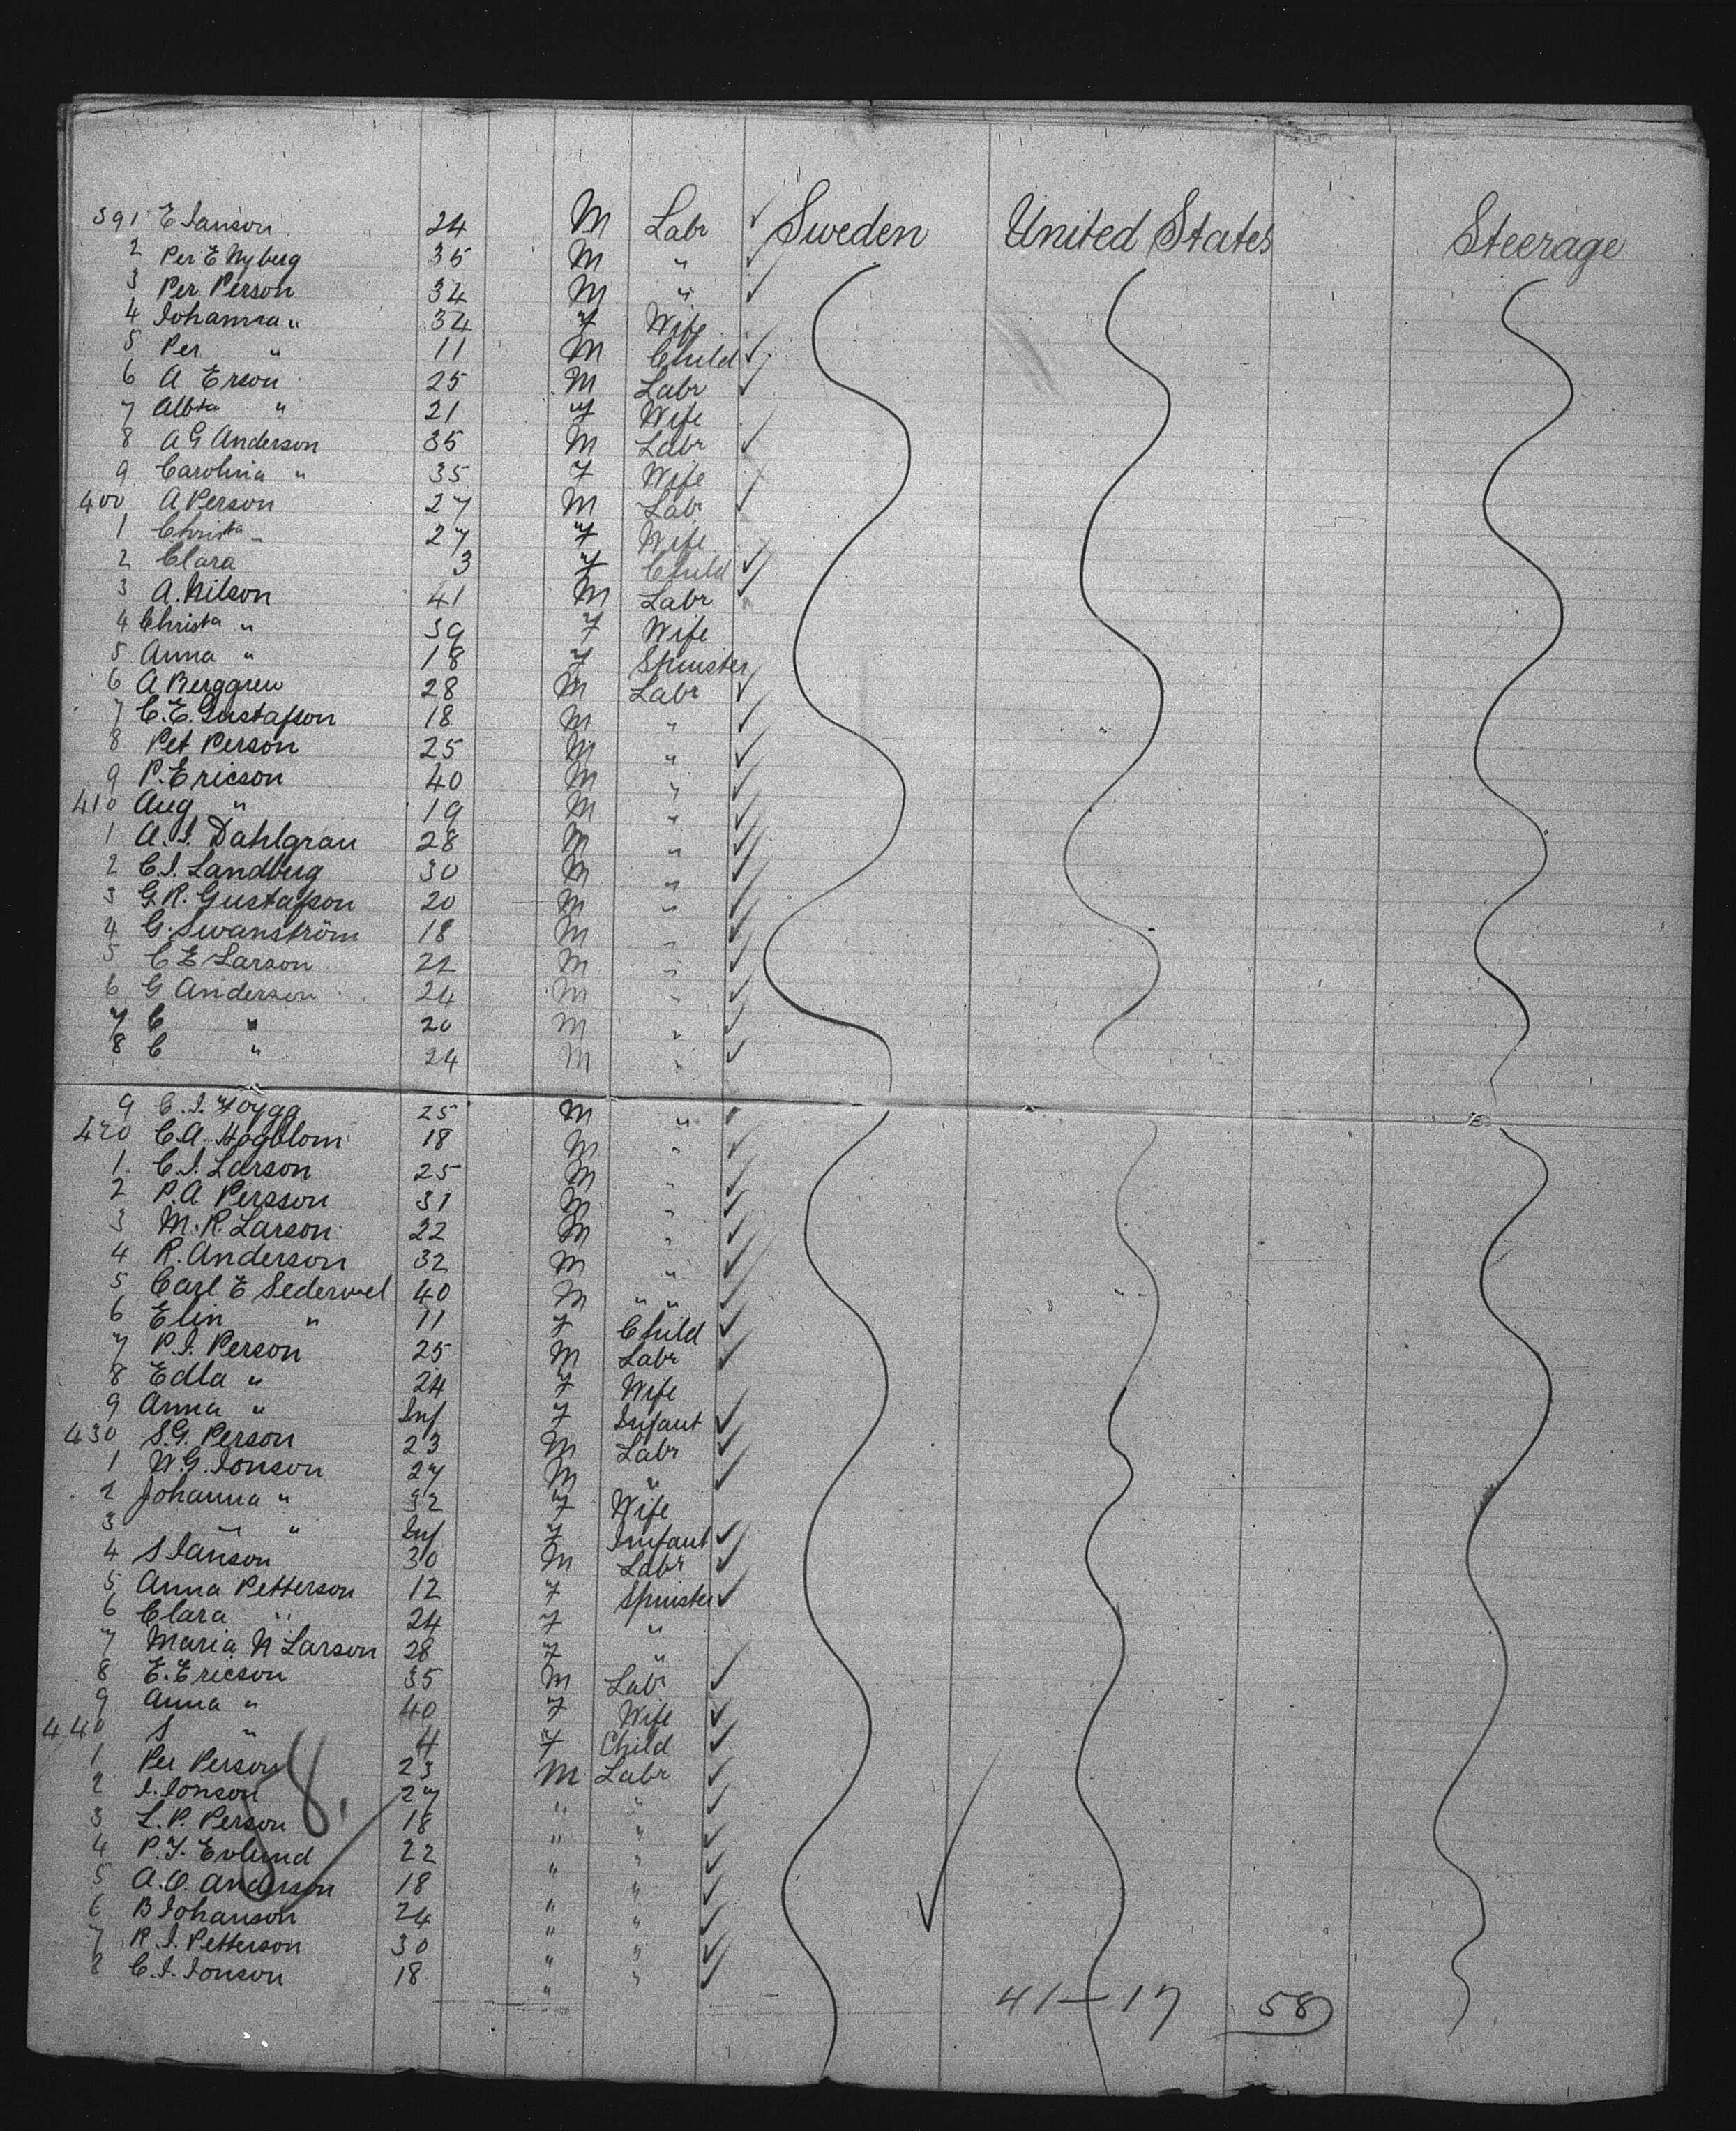 391 E Janson 24 M Labr ✓ Sweden United States Steerage
2 Per E Nyberg 35 M " ✓
3 Per Person 34 M " ✓
4 Johanna " 34 f Wife
5 Per " 11 M Child ✓
6 A Erson 25 M Labr ✓
7 Albta " 21 f Wife
8 A G Anderson 35 M Labr ✓
9 Carolina " 35 f Wife
400 A Person 27 M Labr ✓
1 Christa " 27 f Wife
2 Clara 3 f Child ✓
3 A. Nilson 41 M Labr ✓
4 Christa " 39 f Wife
5 Anna " 18 f Spinster
6 A Berggren 28 M Labr ✓
7 C. E. Gustafson 18 M " ✓
8 Pet Person 25 M " ✓
9 P. Ericson 40 M " ✓
410 Aug " 19 M " ✓
1 A. J. Dahlgran 28 M " ✓
2 C. J. Landberg 30 M " ✓
3 G R. Gustafson 20 M " ✓
4 G. Swanström 18 M " ✓
5 C E Larson 22 M " ✓
6 G Anderson 24 M " ✓
7 C " 20 M " ✓
8 C " 24 M " ✓
9 C. J. 25 M " ✓
420 C. A. Hogblom 18 M " ✓
1 C. J. Larson 25 M " ✓
2 P. A Persson 31 M " ✓
3 M. R. Larson 22 M " ✓
4 R. Anderson 32 M " ✓
5 Carl E 40 M " " ✓
6 Elin " 11 f Child ✓
7 P. J. Person 25 M Labr ✓
8 Edla " 24 f Wife
9 Anna " Inf f Infant ✓
430 S. G. Person 23 M Labr ✓
1 N. G. Jonson 27 M " ✓
2 Johanna " 32 f Wife
3 " " Inf f Infant ✓
4 S Janson 30 M Labr ✓
5 Anna Petterson 12 f Spinster ✓
6 Clara " 24 f "
7 Maria N Larson 28 f "
8 E. Ericson 35 M Labr ✓
9 Anna " 40 f Wife ✓
440 S " 4 f Child ✓
1 Per Person 23 M Labr ✓
2 J. Jonson 27 " " ✓
3 L. P. Person 18 " " ✓
4 P. J. Evlund 22 " " ✓
5 A. O. Anderson 18 " " ✓
6 B Johanson 24 " " ✓
7 R. J. Petterson 30 " " ✓
8 C. J. Jonson 18 " " ✓
58.
41 — 17 58